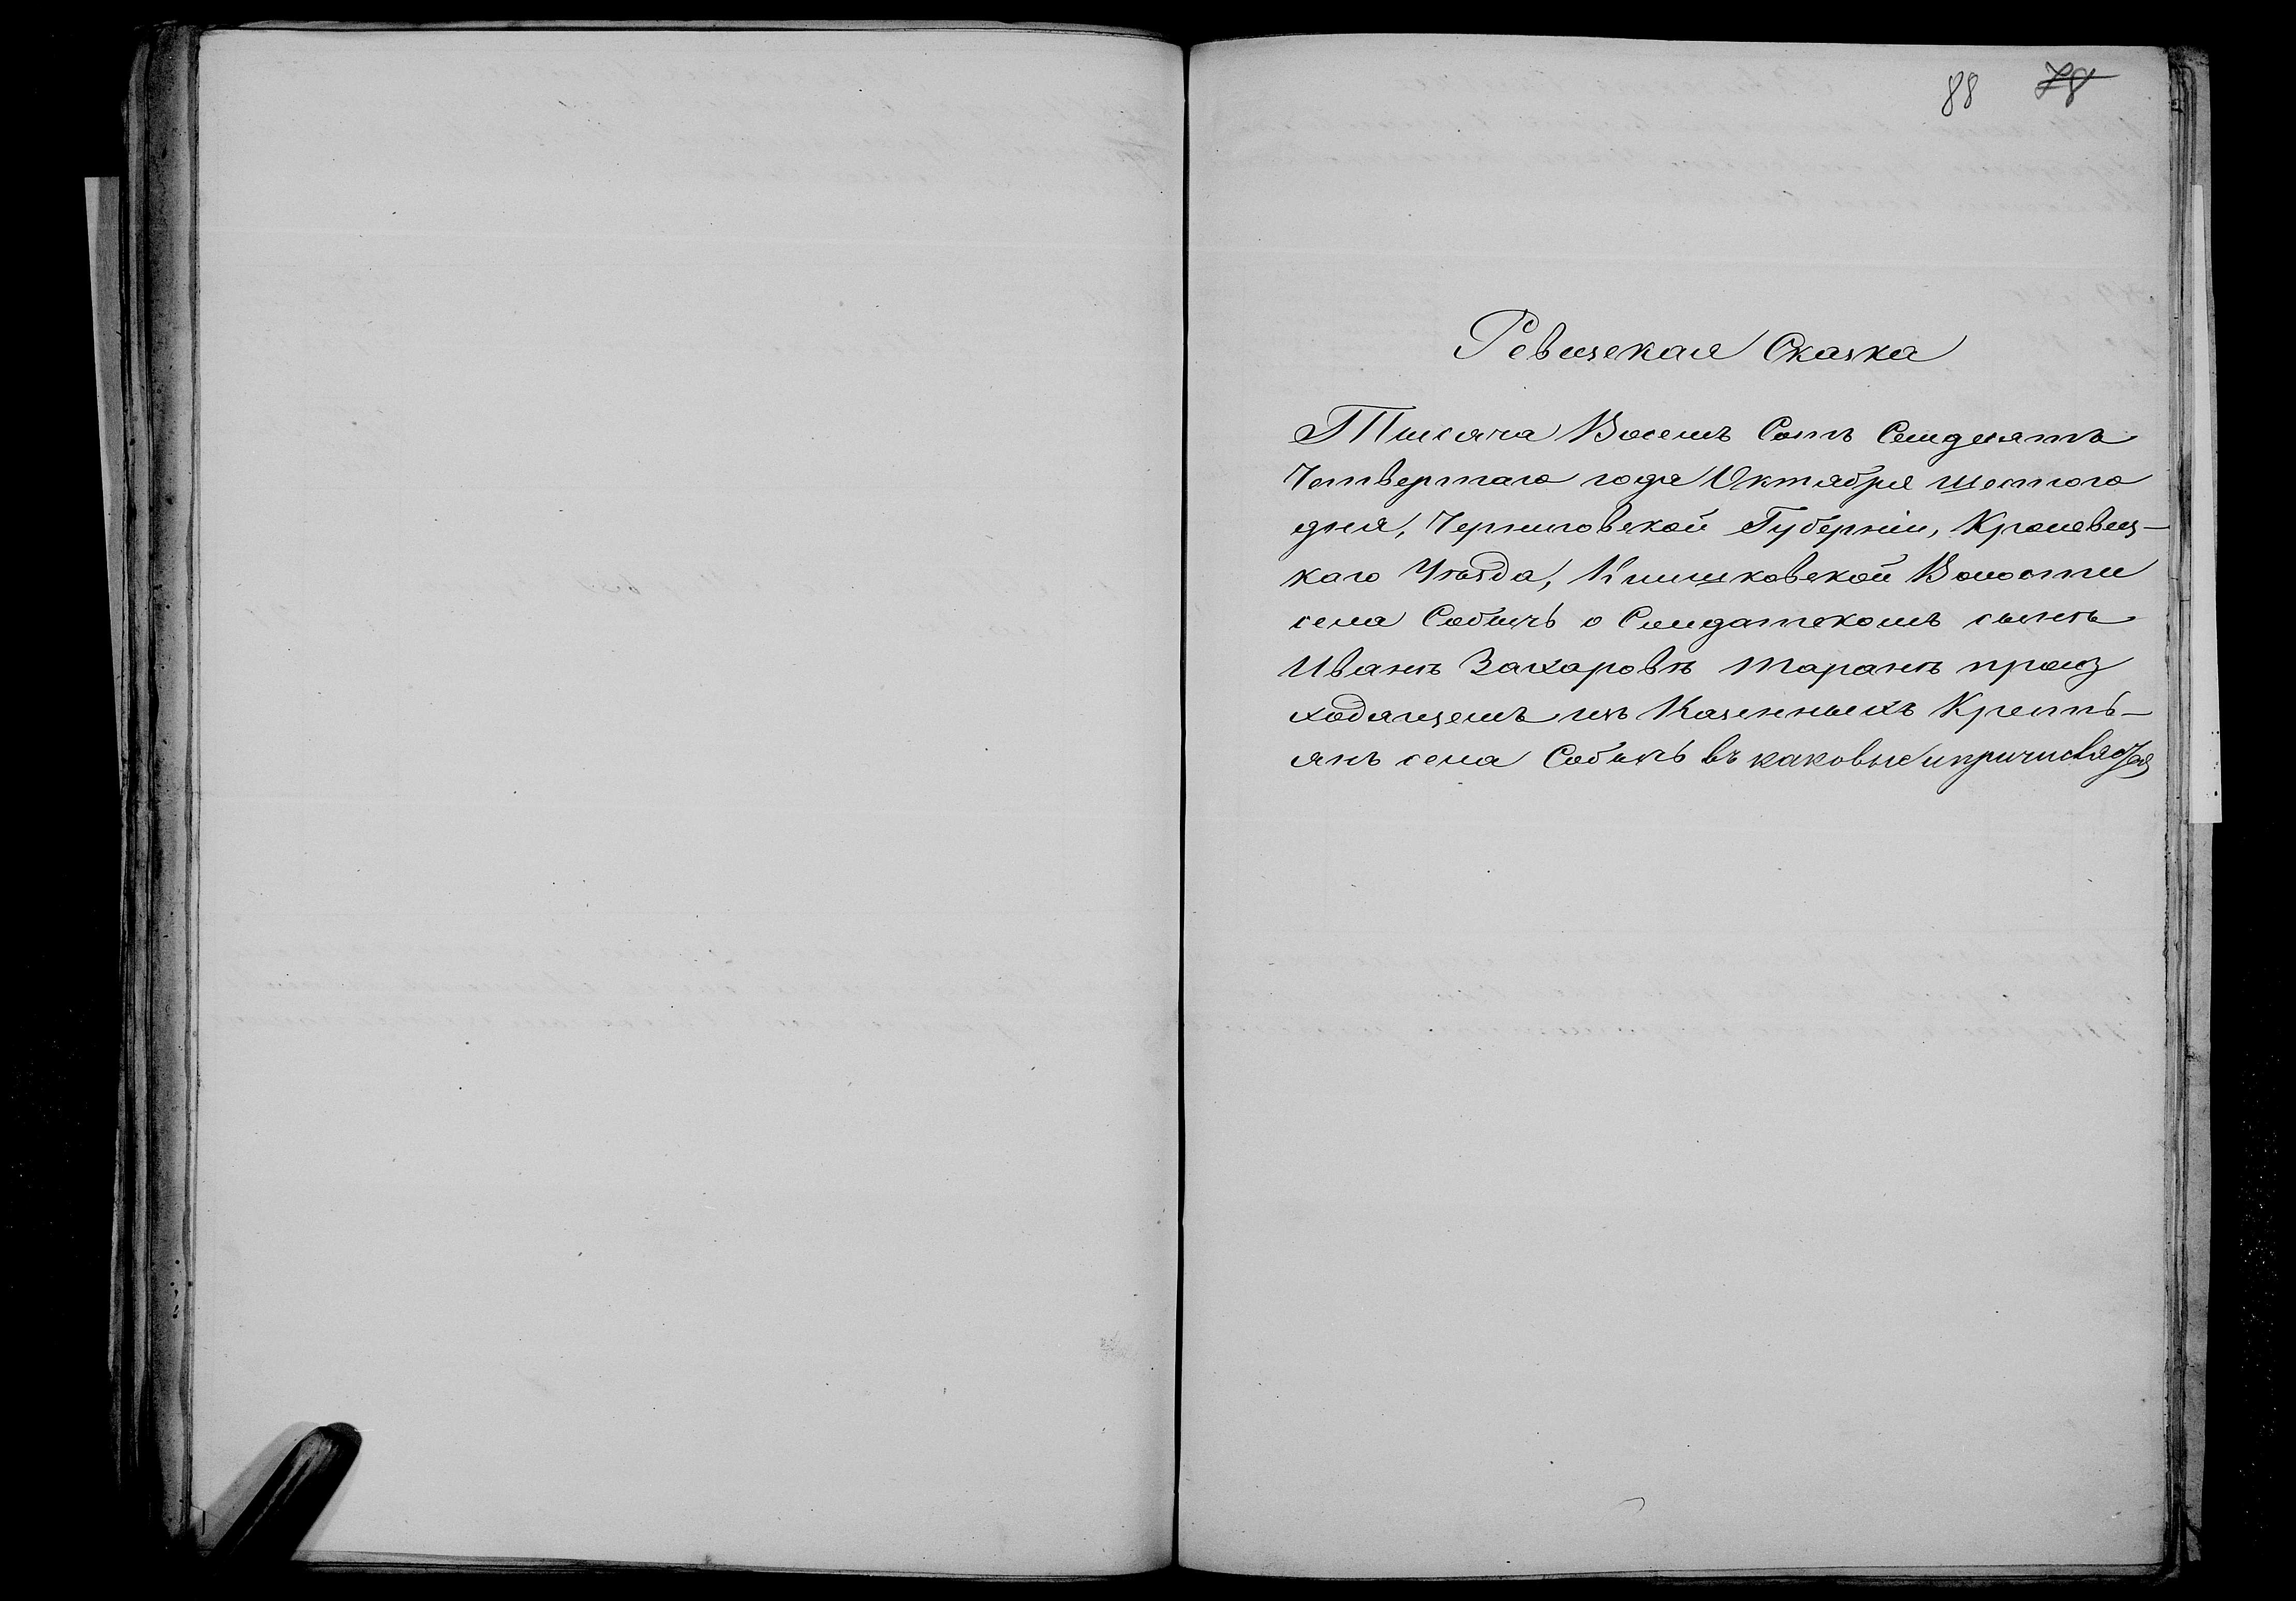 88 78
Ревизская Сказка
Тисяча Восемъ Сотъ Семдесятъ
Четвертаго года Октября шестого
дня, Черниговской Губерніи, Кролевец-
каго Уѣзда, Клишковской Волости
села Собичъ о Солдатскомъ сынѣ
Иванѣ Захаровѣ Таранѣ произ
ходящемъ изъ Казенныхъ Кресть-
янъ села Собичь въ каковые и причисляется